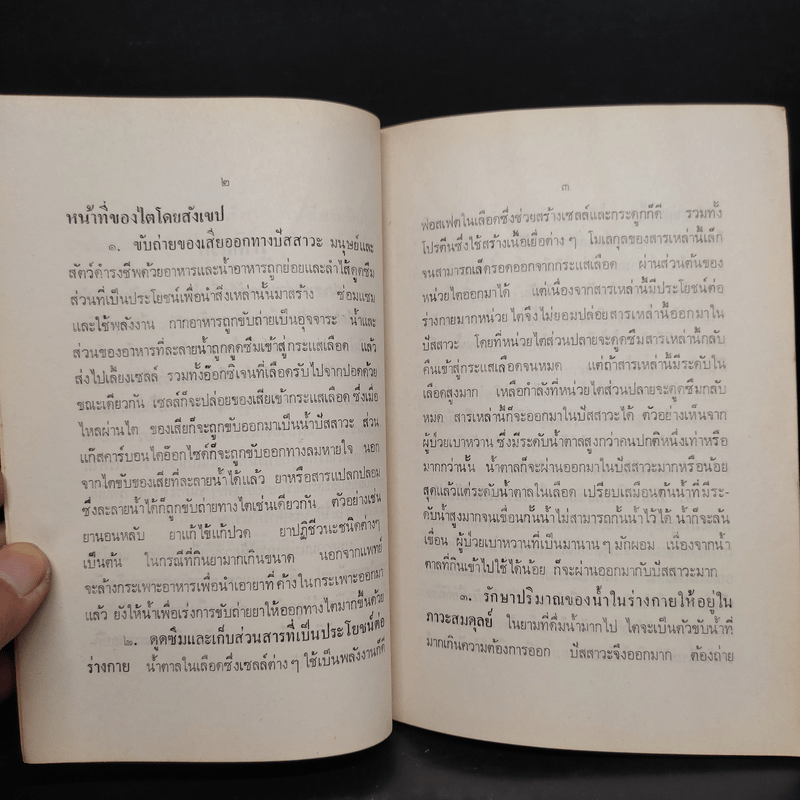 ๒
หน้าที่ของไตโดยสังเขป
๑. ขับถ่ายของเสียออกทางปัสสาวะ มนุษย์และ
สัตว์ดำรงชีพด้วยอาหารและน้ำอาหารถูกย่อยและลำไส้ดูดซึม
ส่วนที่เป็นประโยชน์เพื่อนำสิ่งเหล่านั้นมาสร้าง ซ่อมแซม
และใช้พลังงาน กากอาหารถูกขับถ่ายเป็นอุจจาระ น้ำและ
ส่วนของอาหารที่ละลายน้ำถูกดูดซึมเข้าสู่กระแสเลือด แล้ว
ส่งไปเลี้ยงเซลล์ รวมทั้งอ๊อกซิเจนที่เลือดรับไปจากปอดด้วย
ขณะเดียวกัน เซลล์ก็จะปล่อยของเสียเข้ากระแสเลือด ซึ่งเมื่อ
ไหลผ่านไต ของเสียก็จะถูกขับออกมาเป็นน้ำปัสสาวะ ส่วน
แก๊สคาร์บอนไดอ๊อกไซด์ก็จะถูกขับออกทางลมหายใจ นอก
จากไตขับของเสียที่ละลายน้ำได้แล้ว ยาหรือสารแปลกปลอม
ซึ่งละลายน้ำได้ก็ถูกขับถ่ายทางไตเช่นเดียวกัน ตัวอย่างเช่น
ยานอนหลับ ยาแก้ไข้แก้ปวด ยาปฏิชีวนะชนิดต่างๆ
เป็นต้น ในกรณีที่กินยามากเกินขนาด นอกจากแพทย์
จะล้างกระเพาะอาหารเพื่อนำเอายาที่ค้างในกระเพาะออกมา
แล้ว ยังให้น้ำเพื่อเร่งการขับถ่ายยาให้ออกทางไตมากขึ้นด้วย
๒. ดูดซึมและเก็บส่วนสารที่เป็นประโยชน์ต่อ
ร่างกาย น้ำตาลในเลือดซึ่งเซลล์ต่าง ๆ ใช้เป็นพลังงานก็ดี
๓
ฟอสเฟตในเลือดซึ่งช่วยสร้างเซลล์และกระดูกก็ดี รวมทั้ง
โปรตีนซึ่งใช้สร้างเนื้อเยื่อต่าง ๆ โมเลกุลของสารเหล่านี้เล็ก
จนสามารถเล็ดรอดออกจากกระแสเลือด ผ่านส่วนต้นของ
หน่วยไตออกมาได้ แต่เนื่องจากสารเหล่านี้มีประโยชน์ต่อ
ร่างกายมากหน่วยไตจึงไม่ยอมปล่อยสารเหล่านี้ออกมาใน
ปัสสาวะ โดยที่หน่วยไตส่วนปลายจะดูดซึมสารเหล่านี้กลับ
คืนเข้าสู่กระแสเลือดจนหมด แต่ถ้าสารเหล่านี้มีระดับใน
เลือดสูงมาก เหลือกำลังที่หน่วยไตส่วนปลายจะดูดซึมกลับ
หมด สารเหล่านี้ก็จะออกมาในปัสสาวะได้ ตัวอย่างเห็นจาก
ผู้ป่วยเบาหวาน ซึ่งมีระดับน้ำตาลสูงกว่าคนปกติหนึ่งเท่าหรือ
มากกว่านั้น น้ำตาลก็จะผ่านออกมาในปัสสาวะมากหรือน้อย
สุดแล้วแต่ระดับน้ำตาลในเลือด เปรียบเสมือนต้นน้ำที่มีระ-
ดับน้ำสูงมากจนเขื่อนกั้นน้ำไม่สามารถกั้นน้ำไว้ได้ น้ำก็จะล้น
เขื่อน ผู้ป่วยเบาหวานที่เป็นมานาน ๆ มักผอม เนื่องจากน้ำ
ตาลที่กินเข้าไปใช้ได้น้อย ก็จะผ่านออกมากับปัสสาวะมาก
๓. รักษาปริมาณของน้ำในร่างกายให้อยู่ใน
ภาวะสมดุลย์ ในยามที่ดื่มน้ำมากไป ไตจะเป็นตัวขับน้ำที่
มากเกินความต้องการออก ปัสสาวะจึงออกมาก ต้องถ่าย